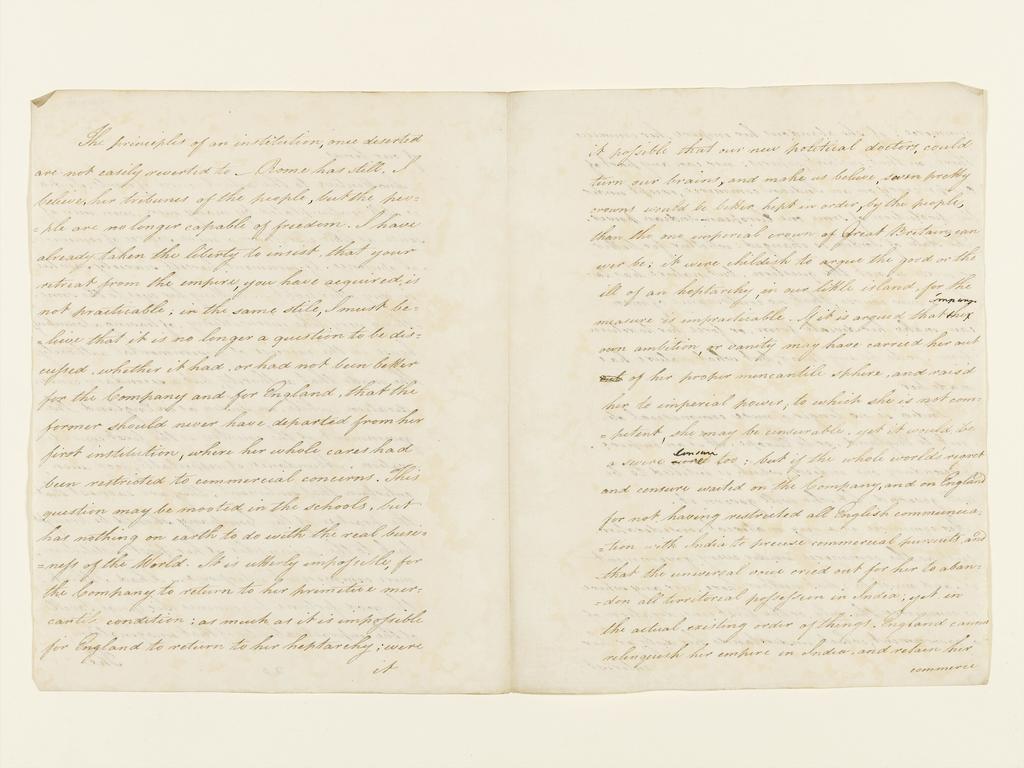 The principles of an institution, once deserted
are not easily reverted to – Rome has still, I
believe, her tribunes of the people, but the peo-
=ple are no longer capable of freedom. I have
already taken the liberty to insist, that your
retreat from the empire, you have acquired, is
not practicable; in the same stile, I must be-
=lieve that it is no longer a question to be dis-
cussed, whether it had, or had not been better
for the Company and for England, that the
former should never have departed from her
first institution, where her whole cares had
been restricted to commercial concerns. This
question may be mooted in the schools, but
has nothing on earth to do with the real busi-
=ness of the World. It is utterly impossible, for
the Company to return to her primitive mer-
cantile condition: as much as it is impossible
for England to return to her heptarchy; were
it
it possible that our new political doctors, could
turn our brains, and make us believe, seven pretty
crowns would be better kept in order, by the people,
than the one imperial crown of Great Britain, can
ever be; it were childish to argue the good or the
ill of an heptarchy, in our little island, for the
measure is impracticable. If it is argued that the
Company's
own ambition, or vanity may have carried her out
out of her proper mercantile sphere, and rais'd
her to imperial power, to which she is not com-
=petent, she may be censurable, yet it would be
censure
a severe too: but if the whole worlds regret
and censure waited on the Company, and on England
for not having restricted all English communica-
=tion with India to precise commercial pursuits, and
that the universal voice cried out for her to aban-
=don all territorial possession in India; yet in
the actual existing order of things, England cannot
relinquish her empire in India, and retain her
commerce